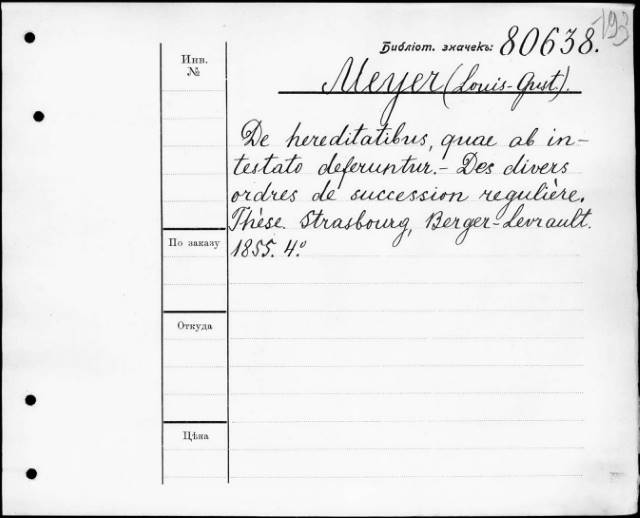 193
Библіот. значекъ: 80638.
Инв.
№
Meyer (Louis-Gust.).
De hereditatibus, quae ab in-
testato deferuntur. - Des divers
ordres de succession regulière.
Thèse. Strasbourg, Berger-Levrault.
1855. 4.º
По заказу
Откуда
Цѣна